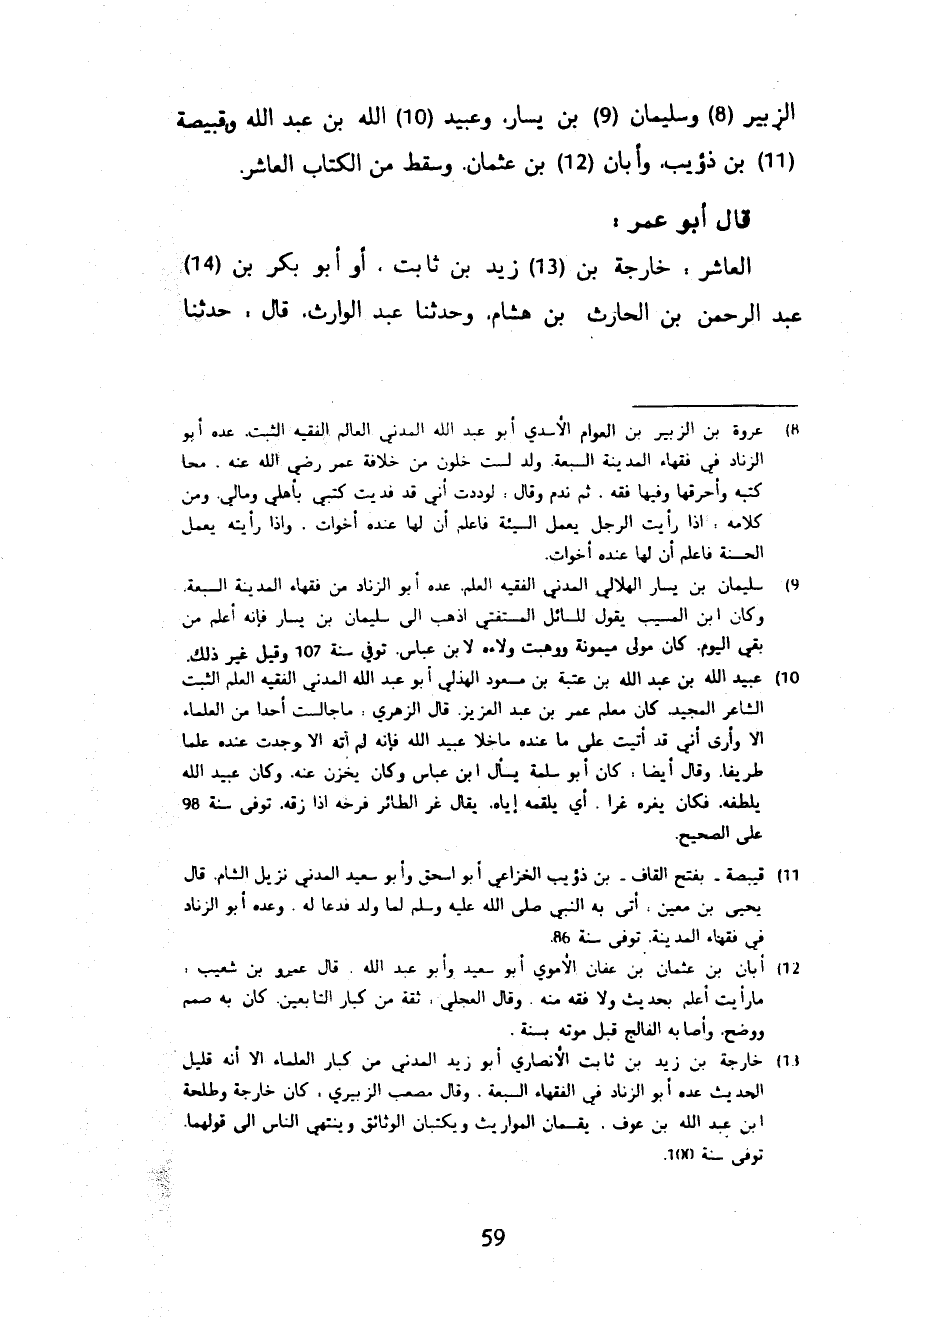 الزبير (8) وسليمان (9) بن يسار، وعبيد (10) الله بن عبد الله وقبيصة
(11) بن ذؤيب، وأبان (12) بن عثمان، وسقط من الكتاب العاشر.
قال أبو عمر :
العاشر : خارجة بن (13) زيد بن ثابت ، أو أبو بكر بن (14)
عبد الرحمن بن الحارث بن هشام، وحدثنا عبد الوارث، قال : حدثنا
8) عروة بن الزبير بن العوام الأسدي أبو عبد الله المدني العالم الفقيه الثبت. عده أبو
الزناد في فقهاء المدينة السبعة. ولد لست خلون من خلافة عمر رضي الله عنه . محا
كتبه وأحرقها وفيها فقه . ثم ندم وقال : لوددت أني قد فديت كتبي بأهلي ومالي. ومن
كلامه : اذا رأيت الرجل يعمل السيئة فاعلم أن لها عنده أخوات . واذا رأيته يعمل
الحسنة فاعلم أن لها عنده أخوات.
9) سليمان بن يسار الهلالي المدني الفقيه العلم. عده أبو الزناد من فقهاء المدينة السبعة.
وكان ابن المسيب يقول للسائل المستفتي اذهب الى سليمان بن يسار فإنه أعلم من
بقي اليوم. كان مولى ميمونة ووهبت ولاءه لابن عباس. توفي سنة 107 وقيل غير ذلك.
10) عبيد الله بن عبد الله بن عتبة بن مسعود الهذلي أبو عبد الله المدني الفقيه العلم الثبت
الشاعر المجيد. كان معلم عمر بن عبد العزيز. قال الزهري : ماجالست أحدا من العلماء
الا وأرى أني قد أتيت على ما عنده ماخلا عبيد الله فإنه لم آته الا وجدت عنده علما
طريفا. وقال أيضا : كان أبو سلمة يسأل ابن عباس وكان يخزن عنه. وكان عبيد الله
يلطفه. فكان يغره غرا . أي يلقمه إياه. يقال غر الطائر فرخه اذا زقه. توفى سنة 98
على الصحيح.
11) قبيصة - بفتح القاف - بن ذؤيب الخزاعي أبو اسحق وأبو سعيد المدني نزيل الشام. قال
يحيى بن معين : أتى به النبي صلى الله عليه وسلم لما ولد فدعا له . وعده أبو الزناد
في فقهاء المدينة. توفى سنة 86.
12) أبان بن عثمان بن عفان الأموي أبو سعيد وأبو عبد الله . قال عمرو بن شعيب :
مارأيت أعلم بحديث ولا فقه منه . وقال العجلي : ثقة من كبار التابعين. كان به صمم
ووضح. وأصابه الفالج قبل موته بسنة .
13) خارجة بن زيد بن ثابت الأنصاري أبو زيد المدني من كبار العلماء الا أنه قليل
الحديث عده أبو الزناد في الفقهاء السبعة . وقال مصعب الزبيري : كان خارجة وطلحة
ابن عبد الله بن عوف . يقسمان المواريث ويكتبان الوثائق وينتهي الناس الى قولهما.
توفى سنة 100.
59